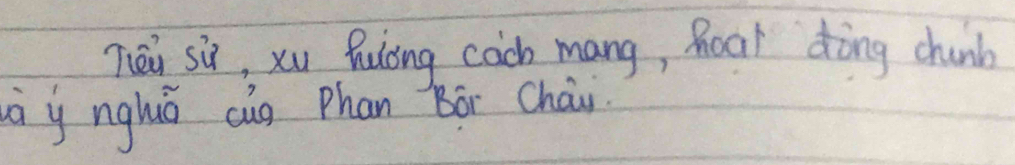 Tiểu sử, xu hướng cách mạng, hoạt động chính
và ý nghĩa của Phan Bội Châu.